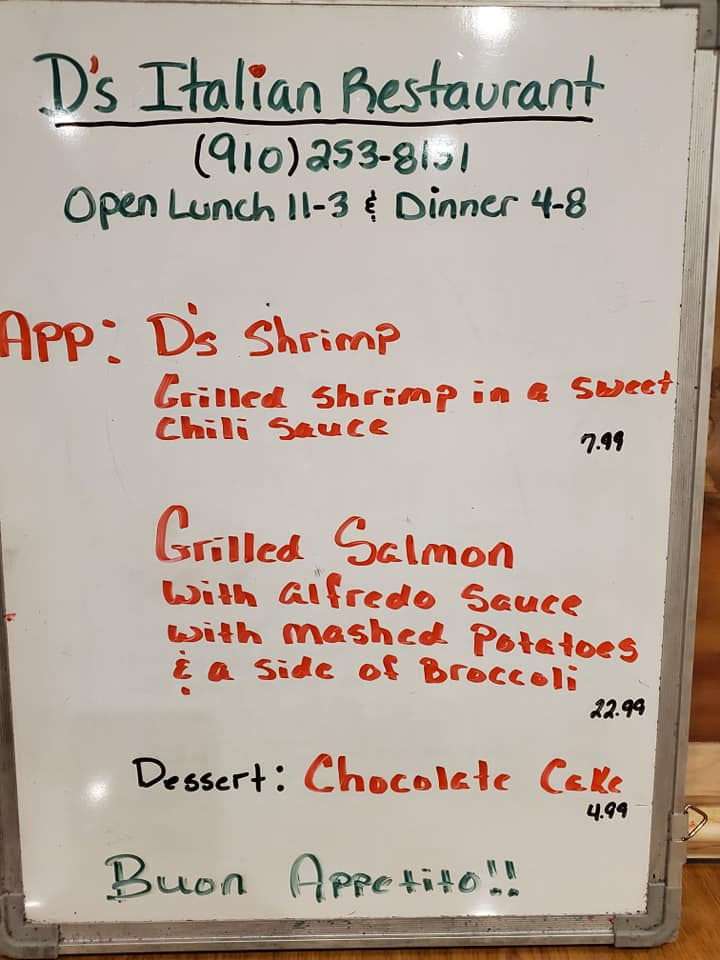 D's Italian Restaurant
(910) 253-8151
Open Lunch 11-3 & Dinner 4-8
App: D's Shrimp
Grilled shrimp in a sweet
chili sauce
7.99
Grilled Salmon
with alfredo sauce
with mashed Potatoes
& a side of Broccoli
22.99
Dessert: Chocolate Cake
4.99
Buon Appetito!!